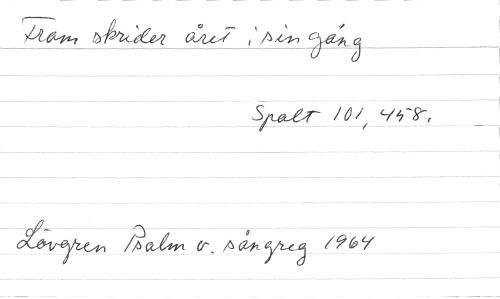 Fram skrider året i sin gång
Spalt 101, 458.
Lövgren Psalm o. sångreg 1964